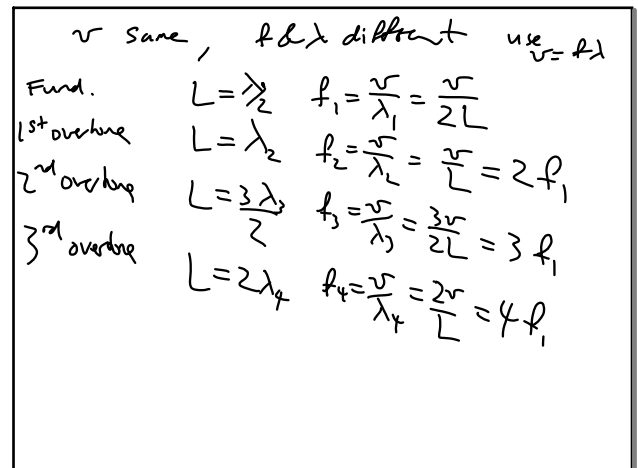 v same, f & λ different use v = fλ
Fund. L = λ/2 f₁ = v/λ₁ = v/2L
1st overtone L = λ₂ f₂ = v/λ₂ = v/L = 2f₁
2nd overtone L = 3λ₃/2 f₃ = v/λ₃ = 3v/2L = 3f₁
3rd overtone L = 2λ₄ f₄ = v/λ₄ = 2v/L = 4f₁